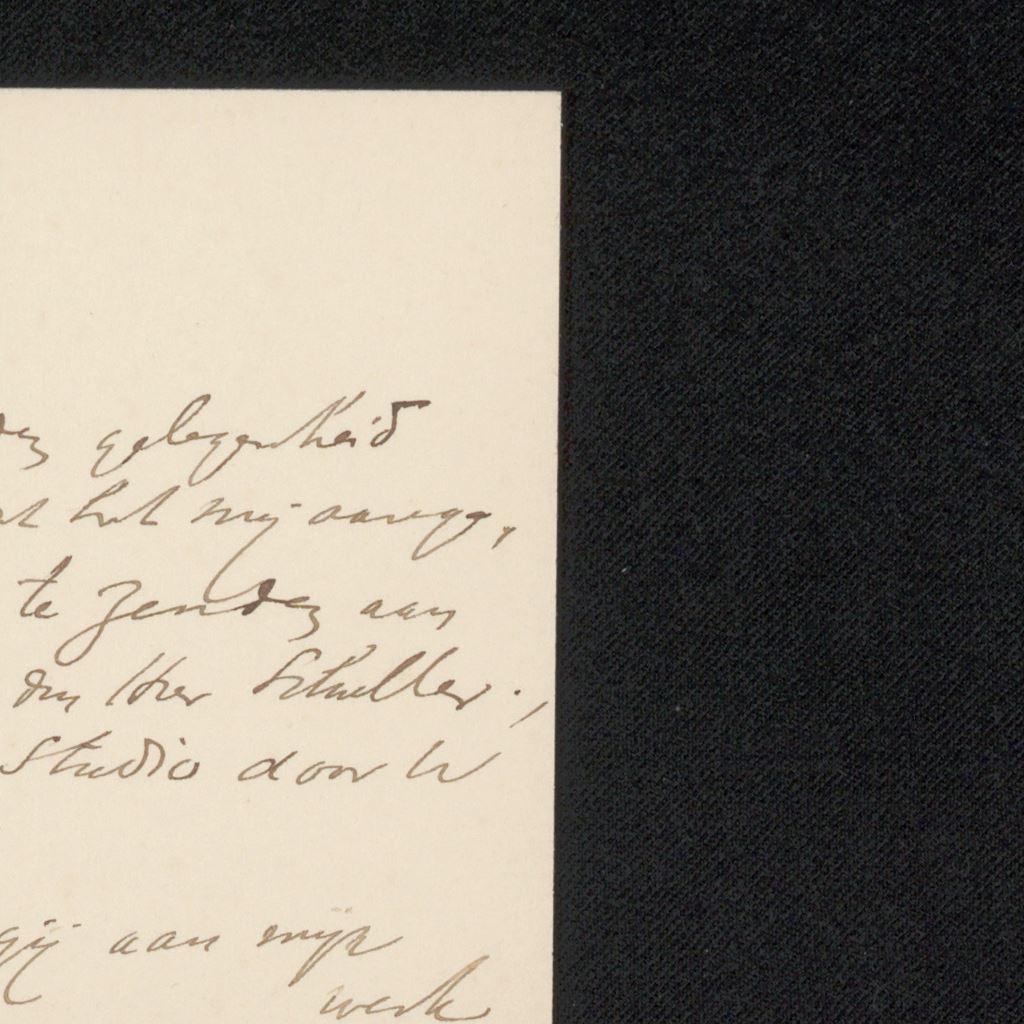 gelegenheid
het mij aange,
te zenden aan
den Heer Schuller,
Studio door U
gij aan mijn
werk